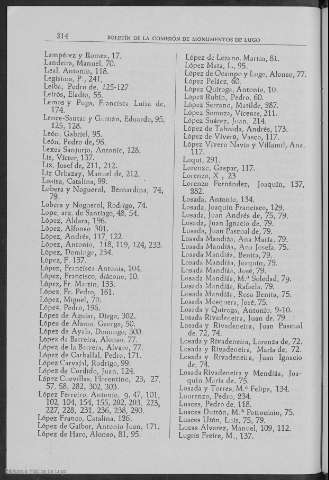 314 BOLETÍN DE LA COMISIÓN DE MONUMENTOS DE LUGO
Lampérez y Romea, 17.
Landeira, Manuel, 70.
Leal, Antonio, 118.
Legísima, P., 241.
Leiba, Pedro de, 125-127
Leirós, Eladio, 55.
Lemos y Puga, Francisca Luisa de,
174.
Lence-Santar y Guitián, Eduardo, 95,
125, 128.
León, Gabriel, 95.
León, Pedro de, 96.
Lexes Sanjurjo, Antonio, 128.
Liz, Víctor, 137.
Liz, José de, 211, 212.
Liz Orbazay, Manuel de, 212.
Loaisa, Catalina, 89.
Lobera y Nogueral, Bernardina, 74,
78.
Lobera y Nogueral, Rodrigo, 74.
Lope, arz. de Santiago, 48, 54.
López, Aldara, 196.
López, Alfonso, 301.
López, Andrés, 117, 122.
López, Antonio, 118, 119, 124, 233.
López, Domingo, 234.
López, F., 137.
López, Francisco Antonio, 104.
López, Francisco, diácono, 10.
López, Fr. Martín, 133.
López, Fr. Pedro, 161.
López, Miguel, 70.
López, Pedro, 196.
López de Andía, Diego, 302.
López de Afano, George, 50.
López de Ayala, Domingo, 300.
López da Barreira, Alonso, 77.
López de la Barrera, Alvaro, 77.
López de Carballal, Pedro, 171.
López Carvajal, Rodrigo, 99.
López de Cordido, Juan, 124.
López Cuevillas, Florentino, 23, 27,
57, 58, 282, 302, 303.
López Ferreiro, Antonio, 9, 47, 101,
102, 104, 154, 155, 202, 204, 223,
227, 228, 231, 236, 238, 293.
López Franco, Catalina, 126.
López de Gaibor, Antonio Juan, 171.
López de Haro, Alonso, 81, 95.
López de Lezano, Martín, 81.
López Mata, L., 95.
López de Ocampo y Lugo, Alonso, 77.
López Peláez, 60.
López Quiroga, Antonio, 10.
López Rubín, Pedro, 60.
López Serrano, Matilde, 287.
López Somoza, Vicente, 211.
López Suárez, Juan, 214.
López de Taboada, Andrés, 173.
López de Vivero, Vasco, 117.
López Vivero Navia y Villamil, Ana,
117.
Loqui, 291.
Lorenzo, Gaspar, 117.
Lorenzo, X., 23
Lorenzo Fernández, Joaquín, 137,
352.
Losada, Antonio, 134.
Losada, Joaquín Francisco, 129.
Losada, Juan Andrés de, 75, 79.
Losada, Juan Ignacio de, 79.
Losada, Juan Pascual de, 79.
Losada Mandiáa, Ana María, 79.
Losada Mandiáa, Ana Josefa, 75.
Losada Mandiáa, Benita, 79.
Losada Mandiáa, Joaquín, 75.
Losada Mandiáa, José, 79.
Losada Mandiáa, M.ª Soledad, 79.
Losada Mandiáa, Rafaela, 79.
Losada Mandiáa, Rosa Benita, 75.
Losada Mosquera, José, 75.
Losada y Quiroga, Antonio, 9-10.
Losada Rivadeneira, Juan de, 79
Losada y Rivadeneira, Juan Pascual
de, 72, 74.
Losada y Rivadeneira, Lorenza de, 72.
Losada y Rivadeneira, María de, 72.
Losada y Rivadeneira, Juan Ignacio
de, 74.
Losada Rivadeneira y Mendíáa, Joa-
quín María de, 75.
Losada y Torres, M.ª Felipa, 134.
Lourenzo, Pedro, 234.
Luaces, Pedro de, 118.
Luaces Dutrón, M.ª Potenciain, 75.
Luaces Ulón, Luis, 75, 79.
Lucas Alvarez, Manuel, 109, 112.
Lugrís Freire, M., 137.